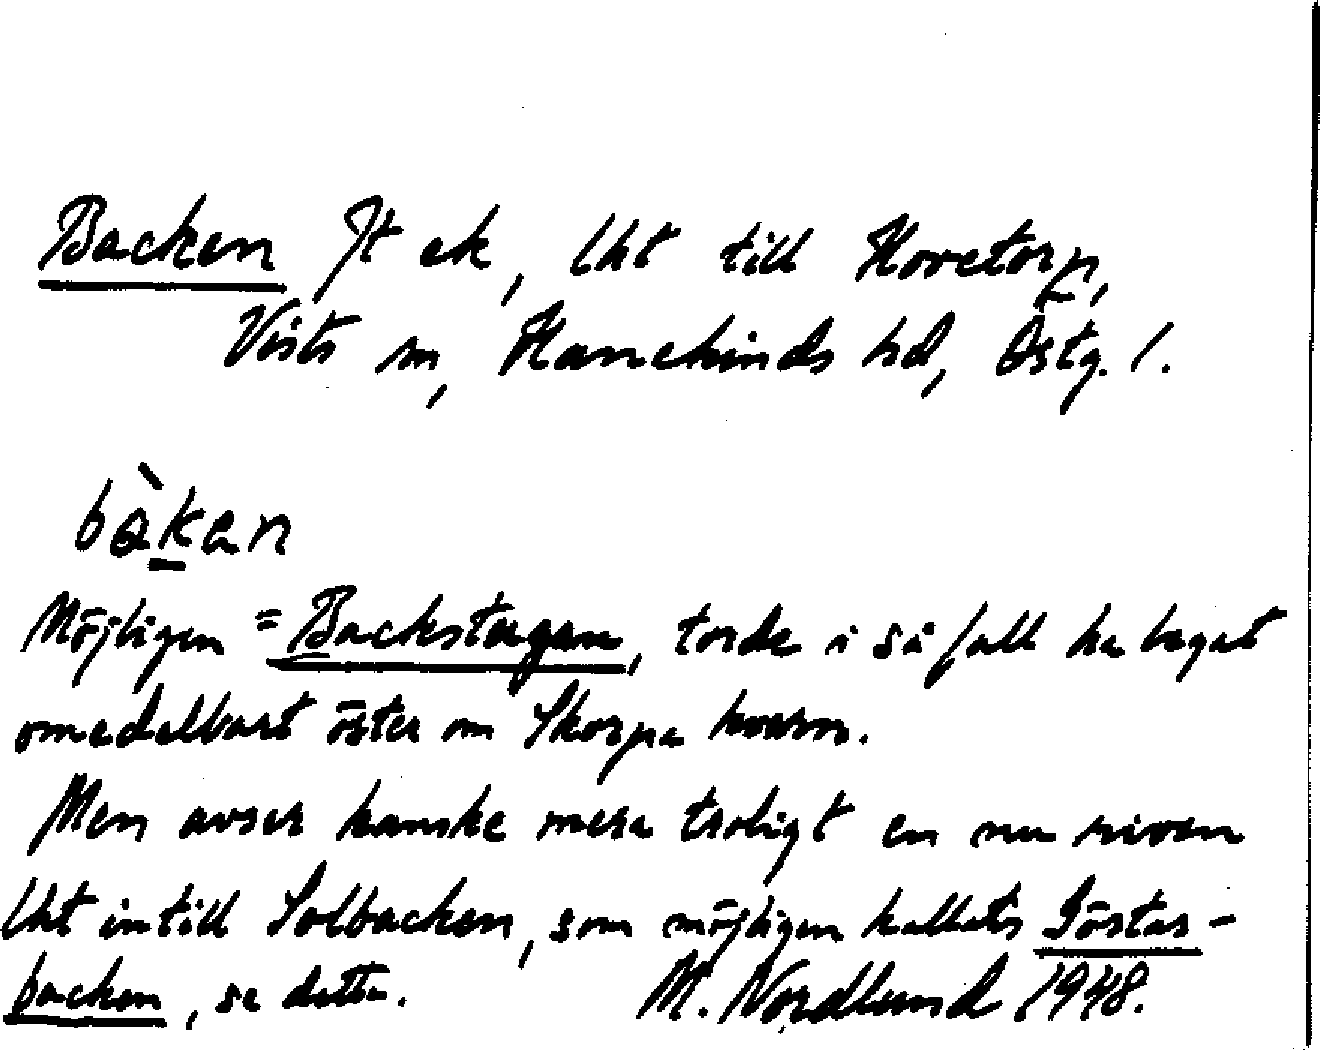 Backen Jt ek, lht till Hovetorp,
Vists sn, Hanekinds hd, Östg. l.
bàken
Möjligen = Backstugan, torde i så fall ha legat
omedelbart öster om Skorpa kvarn.
Men avser kanske mera troligt en nu riven
lht intill Solbacken, som möjligen kallats Göstas-
backen, se detta. M. Nordlund 1948.